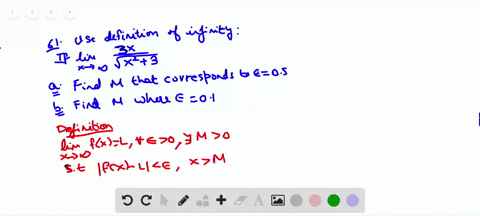 61. Use definition of infinity:
If lim x→∞ 3x/√x²+3
a. Find M that corresponds to ε=0.5
b. Find M where ε=0.1
Definition
lim x→∞ f(x)=L, ∀ε>0, ∃M>0
s.t |f(x)-L|<ε, x>M
A